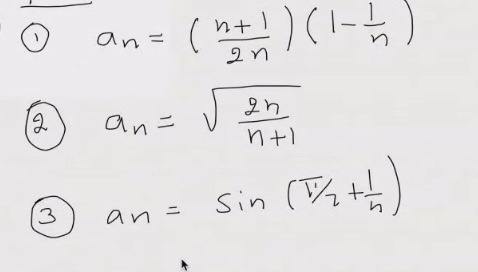 ① an = (n+1/2n)(1-1/n)
② an = √2n/n+1
③ an = sin (π/2+1/n)